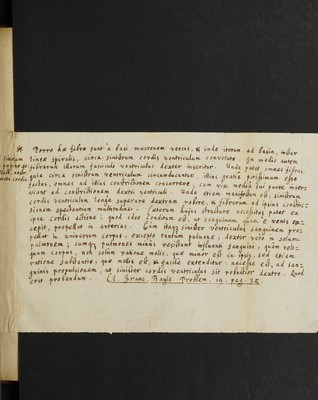 * Porro hae fibrae sunt a basi mucronem versus, & inde iterum ad basin, instar
lineae spiralis, circa sinistrum cordis ventriculum convolutae. In medio autem
fibrarum illarum fasciculi ventriculus dexter inseritur. Unde patet omnes fibras,
quia circa sinistrum ventriculum circumducuntur, illius gratia potissimum esse
factas, omnes ad illius constrictionem concurrere, cum vix media sui parte inser-
viant ad constrictionem dextri ventriculi. Unde etiam manifestum est, sinistrum
cordis ventriculum longe superare dextrum robore, & fibrarum ad ipsius constric-
tionem spectantium multitudine. Caeterum hujus structurae necessitas patet ex
ipsa cordis actione; quod ideo tendendum est, ut sanguinem quem e venis ac-
cepit, propellat in arterias. Cum itaque sinister ventriculus sanguinem pro-
pellat in universum corpus, excepto tantum pulmone, dexter vero in solum
pulmonem; cumque pulmones minus resistant influenti sanguini, quam reli-
quum corpus, non solum ratione molis, quae minor est in ipsis, sed etiam
ratione substantiae, quae mollis est, & facile extenditur; necesse est, ad san-
guinis propulsionem, ut sinister cordis ventriculus sit robustior dextro. Quod
erat probandum. Franc. Bayle Problem. 19. pag. 38